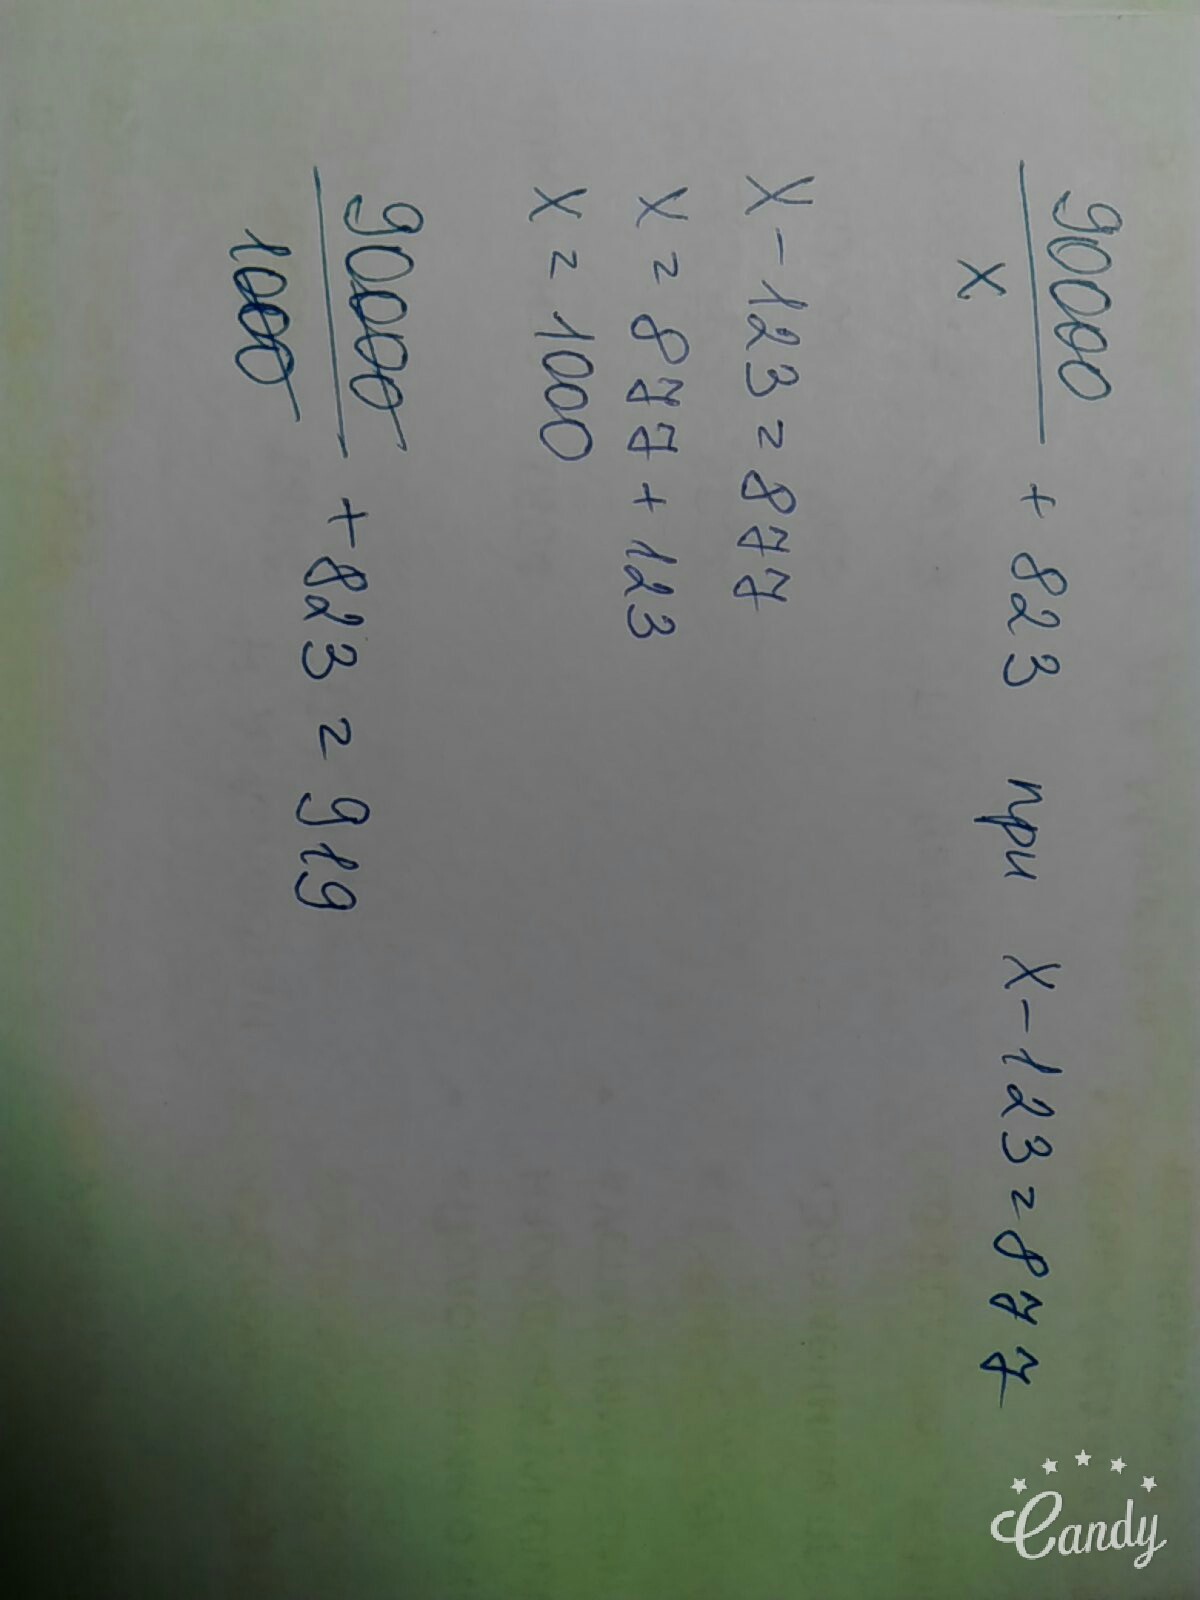 90000
――― + 823 при x - 123 = 877
x
x - 123 = 877
x = 877 + 123
x = 1000
90000
――― + 823 = 919
1000
Candy